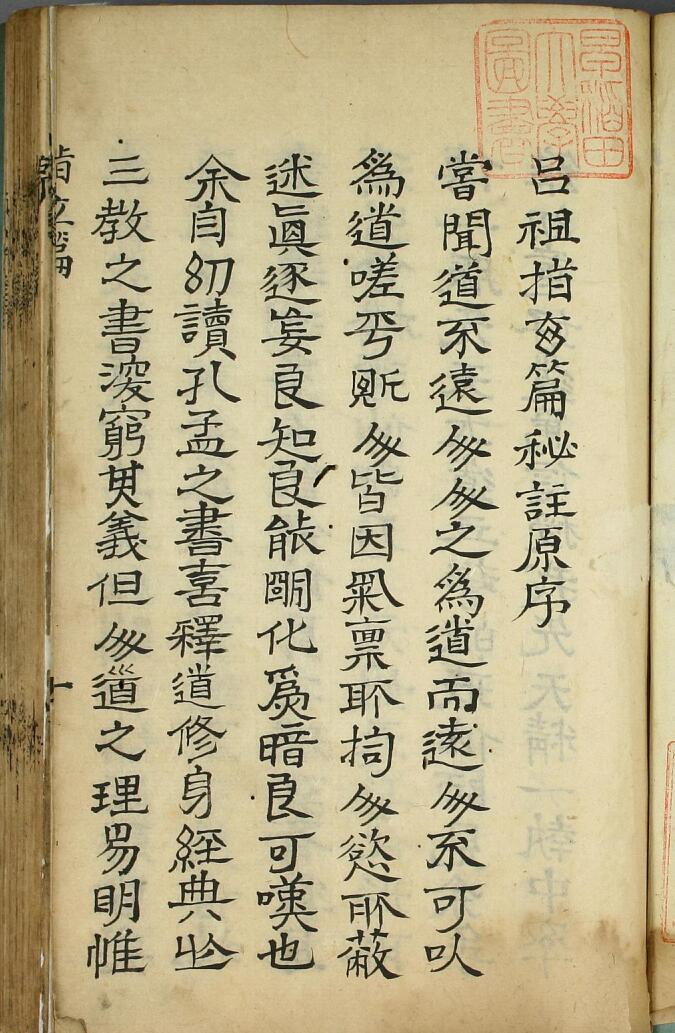 早稻田大學圖書
呂祖指玄篇秘註原序
嘗聞道不遠人人之爲道而遠人不可以
爲道嗟乎人皆因氣稟所拘人慾所蔽
迷眞逐妄良知良能朙化爲暗良可嘆也
余自幼讀孔孟之書喜釋道修身經典
三教之書深窮其義但人道之理易明惟
指玄篇
一